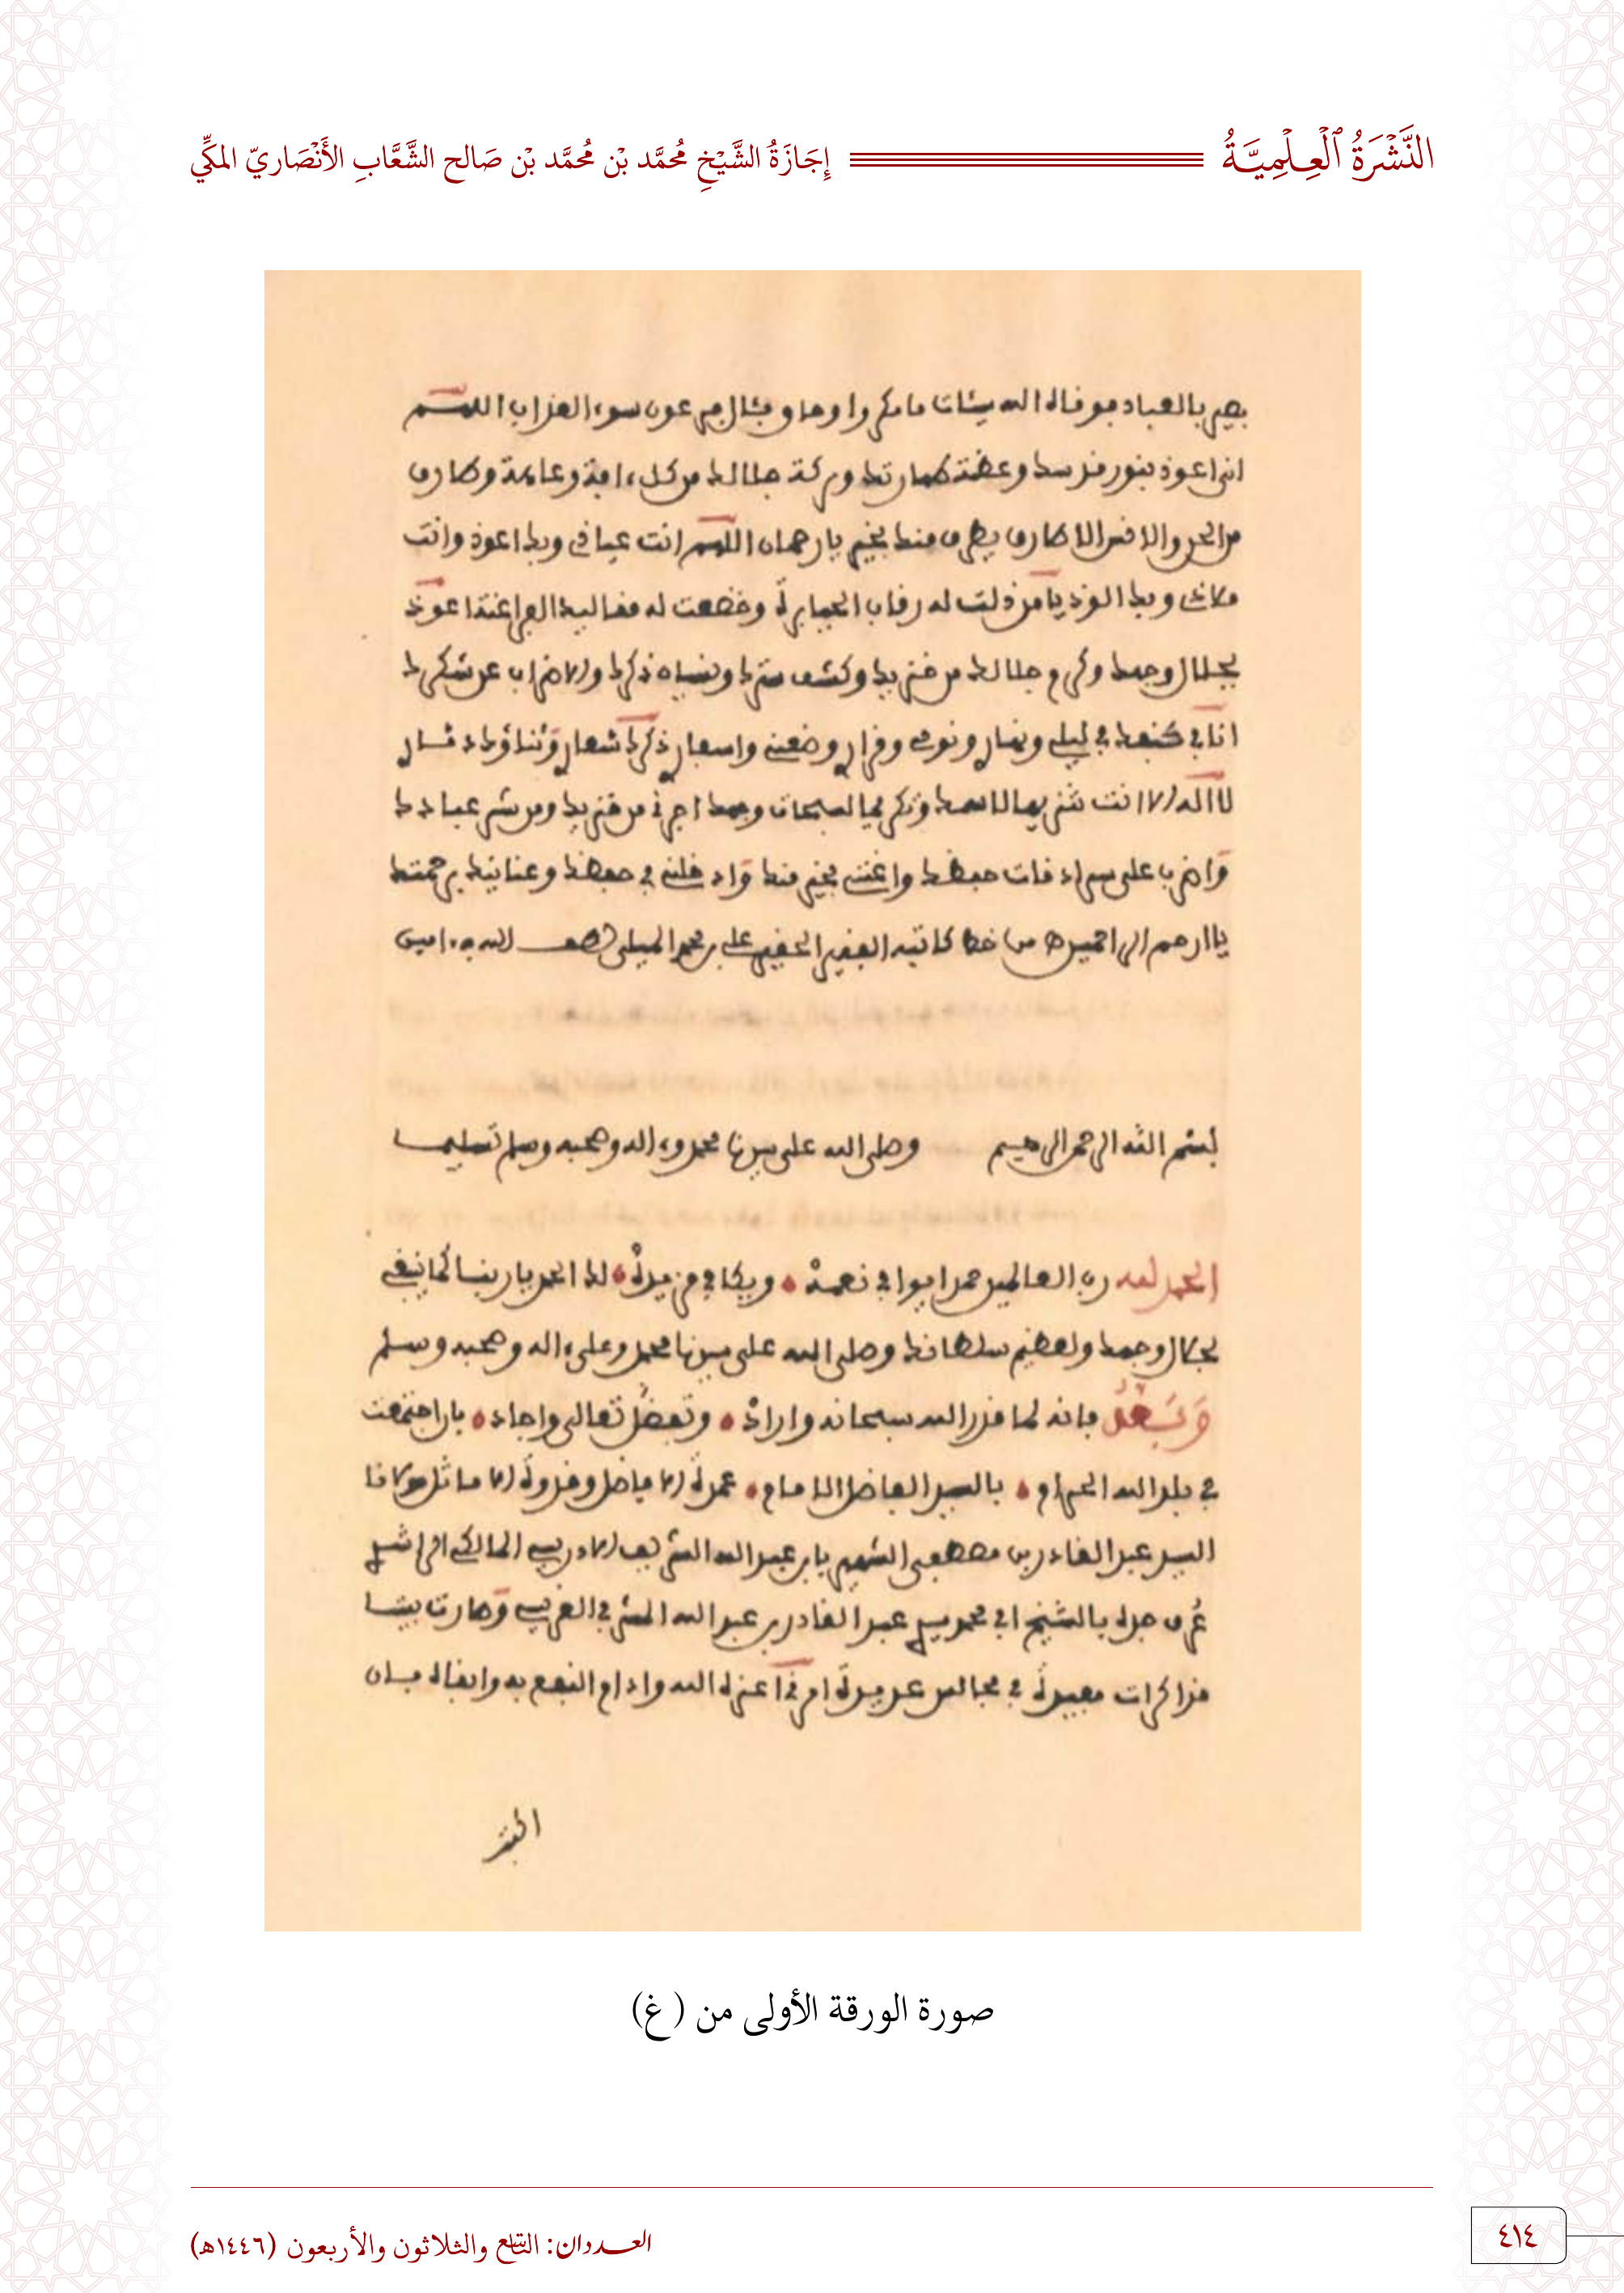 النَّشْرَةُ الْعِلْمِيَّةُ
إِجَازَةُ الشَّيْخِ مُحَمَّد بْن مُحَمَّد بْن صَالح الشَّعَّابِ الأَنْصَاريّ المكِّي
بصير بالعباد فوقاه الله سيئات ما مكروا وحاق بئال فرعون سوء العذاب اللهم
انى اعوذ بنور قدسك وعظمة طهارتك وبركة جلالك من كل ءافة وعاهة وطارق
من الجن والانس الا طارق يطرق منك بخير يا رحمان اللهم انت عياذي وبك اعوذ وانت
ملاذي وبك الوذ يا من ذلت له رقاب الجبابرة وخضعت له مقاليد الفراعنة اعوذ
بجلال وجهك وكرم جلالك من خزيك وكشف سترك ونسيان ذكرك والاضراب عن شكرك
انا في كنفك في ليلي ونهاري ونومي وقراري وضعني واسفاري ذكرك شعاري وثناؤك دثاري
لا اله الا انت تنزيها لاسمك وتكريما لسبحات وجهك اجرني من خزيك ومن شر عبادك
واضرب علي سرادقات حفظك واغثني بخير منك وادخلني في حفظك وعنايتك برحمتك
يا ارحم الراحمين من خط كاتبه الفقير الحقير علي بن محمد الميلي لطف الله به ءامين
بسم الله الرحمن الرحيم وصلى الله على سيدنا محمد وءاله وصحبه وسلم تسليما
الحمد لله رب العالمين حمدا يوافي نعمه ويكافي مزيده لك الحمد يا ربنا كما ينبغي
لجلال وجهك ولعظيم سلطانك وصلى الله على سيدنا محمد وعلى ءاله وصحبه وسلم
وَبَعْدُ فانه لما قدر الله سبحانه واراد وتفضل تعالى واجاد بان اجتمعت
في بلد الله الحرام بالسيد الفاضل الامام عمدة الافاضل وقدوة الاماثل مولانا
السيد عبد القادر بن مصطفى الشهير بابن عبد الله الشريف الادريسي المالكي الراشدي
عُرف جده بالشيخ ابي محمد سيدي عبد القادر بن عبد الله المشرفي الغريسي وصارت بيننا
مذاكرات مفيدة في مجالس عديدة امرني اعزه الله وادام النفع به وابقاه بان
صورة الورقة الأولى من (غ)
العددان: التاسع والثلاثون والأربعون (١٤٤٦هـ)
٤١٤